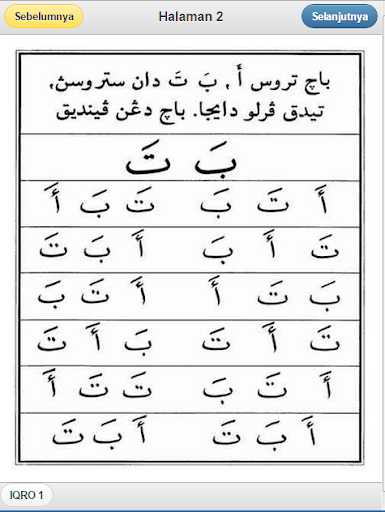 Sebelumnya Halaman 2 Selanjutnya
باچ تروس أَ , بَ تَ دان ستروسڽ,
تيدق ڤرلو دايجا. باچ دڠن ڤينديق
بَ تَ
أَ تَ بَ تَ بَ أَ
تَ أَ بَ أَ بَ تَ
بَ تَ أَ أَ تَ بَ
تَ أَ تَ بَ أَ تَ
أَ تَ بَ تَ تَ أَ
أَ بَ تَ أَ بَ تَ
IQRO 1